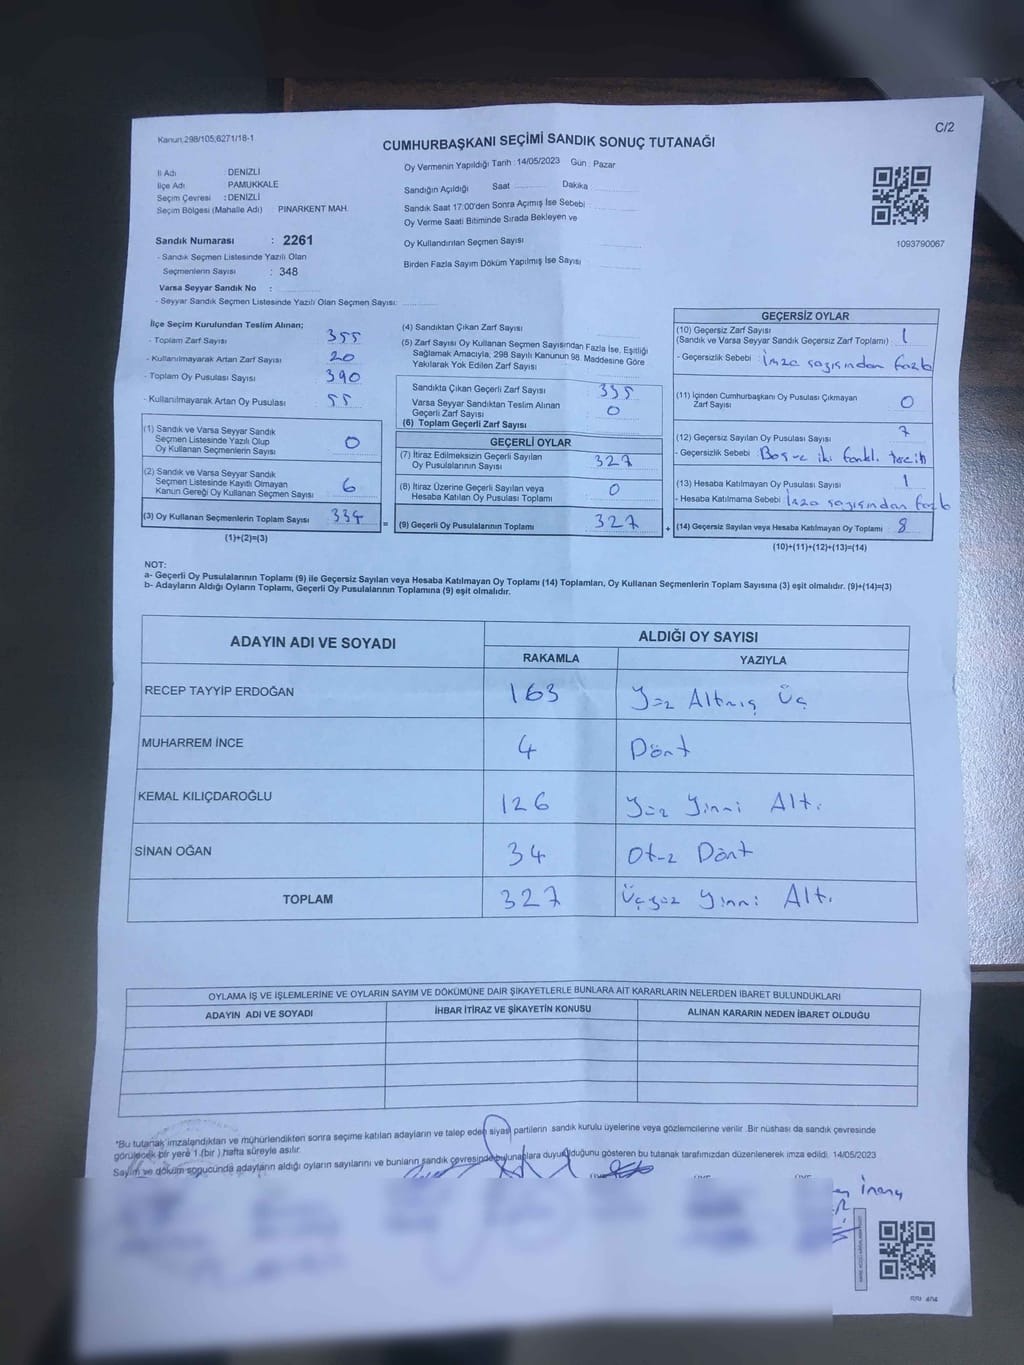 Kanun.298/105;6271/18-1
C/2
CUMHURBAŞKANI SEÇİMİ SANDIK SONUÇ TUTANAĞI
İl Adı : DENİZLİ
İlçe Adı : PAMUKKALE
Seçim Çevresi : DENİZLİ
Seçim Bölgesi (Mahalle Adı) : PINARKENT MAH.
Oy Vermenin Yapıldığı Tarih : 14/05/2023 Gün : Pazar
Sandığın Açıldığı Saat Dakika
Sandık Saat 17:00'den Sonra Açımış İse Sebebi
Oy Verme Saati Bitiminde Sırada Bekleyen ve
Oy Kullandırılan Seçmen Sayısı
Birden Fazla Sayım Döküm Yapılmış İse Sayısı
1093790067
Sandık Numarası : 2261
- Sandık Seçmen Listesinde Yazılı Olan
Seçmenlerin Sayısı : 348
Varsa Seyyar Sandık No :
- Seyyar Sandık Seçmen Listesinde Yazılı Olan Seçmen Sayısı:
İlçe Seçim Kurulundan Teslim Alınan;
- Toplam Zarf Sayısı 355
- Kullanılmayarak Artan Zarf Sayısı 20
- Toplam Oy Pusulası Sayısı 390
- Kullanılmayarak Artan Oy Pusulası 55
(1) Sandık ve Varsa Seyyar Sandık
Seçmen Listesinde Yazılı Olup
Oy Kullanan Seçmenlerin Sayısı 0
(2) Sandık ve Varsa Seyyar Sandık
Seçmen Listesinde Kayıtlı Olmayan
Kanun Gereği Oy Kullanan Seçmen Sayısı 6
(3) Oy Kullanan Seçmenlerin Toplam Sayısı 334
(1)+(2)=(3)
(4) Sandıktan Çıkan Zarf Sayısı
(5) Zarf Sayısı Oy Kullanan Seçmen Sayısından Fazla İse, Eşitliği
Sağlamak Amacıyla, 298 Sayılı Kanunun 98. Maddesine Göre
Yakılarak Yok Edilen Zarf Sayısı
Sandıkta Çıkan Geçerli Zarf Sayısı 335
Varsa Seyyar Sandıktan Teslim Alınan
Geçerli Zarf Sayısı 0
(6) Toplam Geçerli Zarf Sayısı
GEÇERLİ OYLAR
(7) İtiraz Edilmeksizin Geçerli Sayılan
Oy Pusulalarının Sayısı 327
(8) İtiraz Üzerine Geçerli Sayılan veya
Hesaba Katılan Oy Pusulası Toplamı 0
= (9) Geçerli Oy Pusulalarının Toplamı 327 +
GEÇERSİZ OYLAR
(10) Geçersiz Zarf Sayısı
(Sandık ve Varsa Seyyar Sandık Geçersiz Zarf Toplamı) 1
- Geçersizlik Sebebi İmza sayısından fazla
(11) İçinden Cumhurbaşkanı Oy Pusulası Çıkmayan
Zarf Sayısı 0
(12) Geçersiz Sayılan Oy Pusulası Sayısı 7
- Geçersizlik Sebebi Boş ve iki farklı tercih
(13) Hesaba Katılmayan Oy Pusulası Sayısı 1
- Hesaba Katılmama Sebebi İmza sayısından fazla
(14) Geçersiz Sayılan veya Hesaba Katılmayan Oy Toplamı 8
(10)+(11)+(12)+(13)=(14)
NOT:
a- Geçerli Oy Pusulalarının Toplamı (9) ile Geçersiz Sayılan veya Hesaba Katılmayan Oy Toplamı (14) Toplamları, Oy Kullanan Seçmenlerin Toplam Sayısına (3) eşit olmalıdır. (9)+(14)=(3)
b- Adayların Aldığı Oyların Toplamı, Geçerli Oy Pusulalarının Toplamına (9) eşit olmalıdır.
ADAYIN ADI VE SOYADI ALDIĞI OY SAYISI
RAKAMLA YAZIYLA
RECEP TAYYİP ERDOĞAN 163 Yüz Altmış Üç
MUHARREM İNCE 4 Dört
KEMAL KILIÇDAROĞLU 126 Yüz Yirmi Altı
SİNAN OĞAN 34 Otuz Dört
TOPLAM 327 Üçyüz Yirmi Altı
OYLAMA İŞ VE İŞLEMLERİNE VE OYLARIN SAYIM VE DÖKÜMÜNE DAİR ŞİKAYETLERLE BUNLARA AİT KARARLARIN NELERDEN İBARET BULUNDUKLARI
ADAYIN ADI VE SOYADI İHBAR İTİRAZ VE ŞİKAYETİN KONUSU ALINAN KARARIN NEDEN İBARET OLDUĞU
*Bu tutanak imzalandıktan ve mühürlendikten sonra seçime katılan adayların ve talep eden siyasi partilerin sandık kurulu üyelerine veya gözlemcilerine verilir .Bir nüshası da sandık çevresinde
görülecek bir yere 1 (bir ) hafta süreyle asılır.
Sayım ve döküm sonucunda adayların aldığı oyların sayılarını ve bunların sandık çevresinde bulunanlara duyurulduğunu gösteren bu tutanak tarafımızdan düzenlenerek imza edildi. 14/05/2023